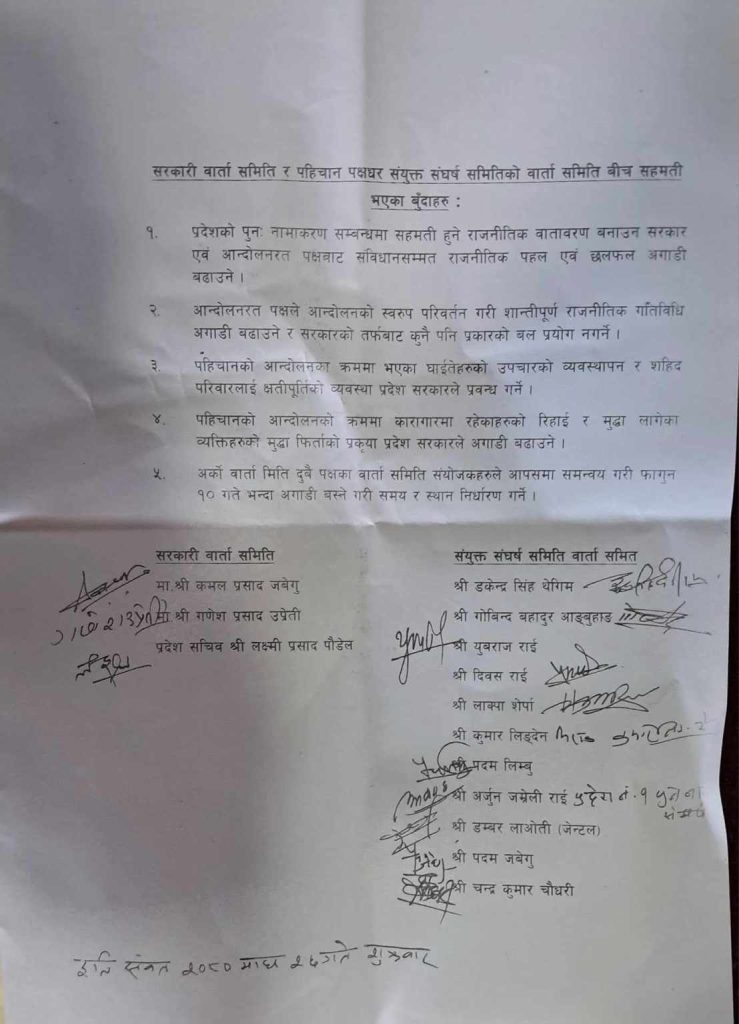 सरकारी वार्ता समिति र पहिचान पक्षधर संयुक्त संघर्ष समितिको वार्ता समिति बीच सहमती
भएका बुँदाहरु :
१. प्रदेशको पुनः नामाकरण सम्बन्धमा सहमती हुने राजनीतिक वातावरण बनाउन सरकार
एवं आन्दोलनरत पक्षबाट संविधानसम्मत राजनीतिक पहल एवं छलफल अगाडी
बढाउने ।
२. आन्दोलनरत पक्षले आन्दोलनको स्वरुप परिवर्तन गरी शान्तीपूर्ण राजनीतिक गतिविधि
अगाडी बढाउने र सरकारको तर्फबाट कुनै पनि प्रकारको बल प्रयोग नगर्ने ।
३. पहिचानको आन्दोलनका क्रममा भएका घाईतेहरुको उपचारको व्यवस्थापन र शहिद
परिवारलाई क्षतीपूर्तिको व्यवस्था प्रदेश सरकारले प्रवन्ध गर्ने ।
४. पहिचानको आन्दोलनको क्रममा कारागारमा रहेकाहरुको रिहाई र मुद्धा लागेका
व्यक्तिहरुको मुद्धा फिर्ताको प्रकृया प्रदेश सरकारले अगाडी बढाउने ।
५. अर्को वार्ता मिति दुबै पक्षका वार्ता समिति संयोजकहरुले आपसमा समन्वय गरी फागुन
१० गते भन्दा अगाडी बस्ने गरी समय र स्थान निर्धारण गर्ने ।
सरकारी वार्ता समिति
मा.श्री कमल प्रसाद जबेगु
मा.श्री गणेश प्रसाद उप्रेती
प्रदेश सचिव श्री लक्ष्मी प्रसाद पौडेल
संयुक्त संघर्ष समिति वार्ता समित
श्री डकेन्द्र सिंह थेगिम
श्री गोबिन्द बहादुर आङबुहाङ
श्री युबराज राई
श्री दिवस राई
श्री लाक्पा शेर्पा
श्री कुमार लिङ्देन
श्री पदम लिम्बु
श्री अर्जुन जम्नेली राई प्रदेश नं. १
श्री डम्बर लाओती (जेन्टल)
श्री पदम जबेगु
श्री चन्द्र कुमार चौधरी
इति संवत २०८० माघ २६ गते शुक्रवार